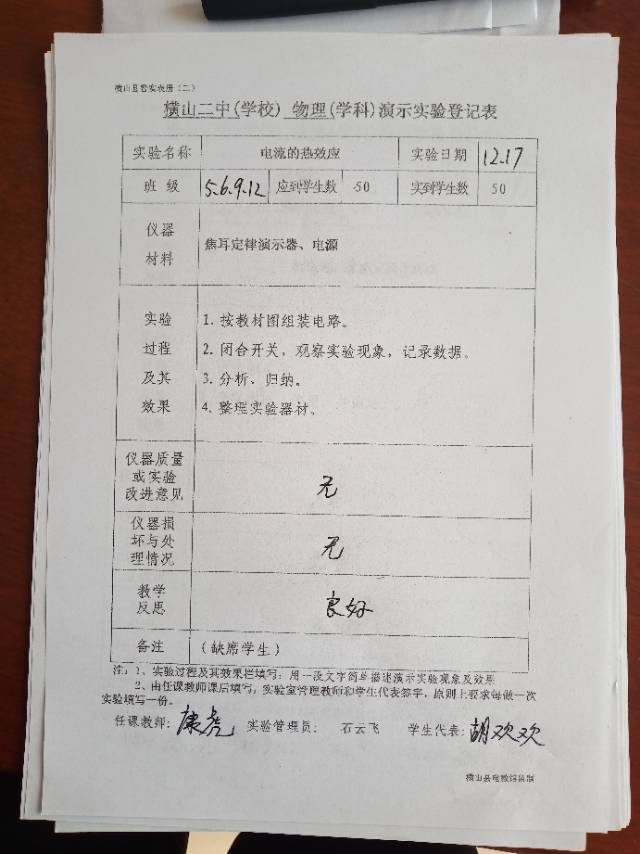 横山县普实表册(二)
横山二中(学校) 物理(学科)演示实验登记表
实验名称 电流的热效应 实验日期 12.17
班 级 5.6.9.12 应到学生数 50 实到学生数 50
仪器
材料
焦耳定律演示器、电源
实验
过程
及其
效果
1. 按教材图组装电路。
2. 闭合开关，观察实验现象，记录数据。
3. 分析、归纳。
4. 整理实验器材。
仪器质量
或实验
改进意见
无
仪器损
坏与处
理情况
无
教学
反思
良好
备注 (缺席学生)
注: 1、实验过程及其效果栏填写: 用一段文字简单描述演示实验现象及效果
2、由任课教师课后填写, 实验室管理教师和学生代表签字, 原则上要求每做一次
实验填写一份。
任课教师: 康虎 实验管理员: 石云飞 学生代表: 胡欢欢
横山县电教馆监制